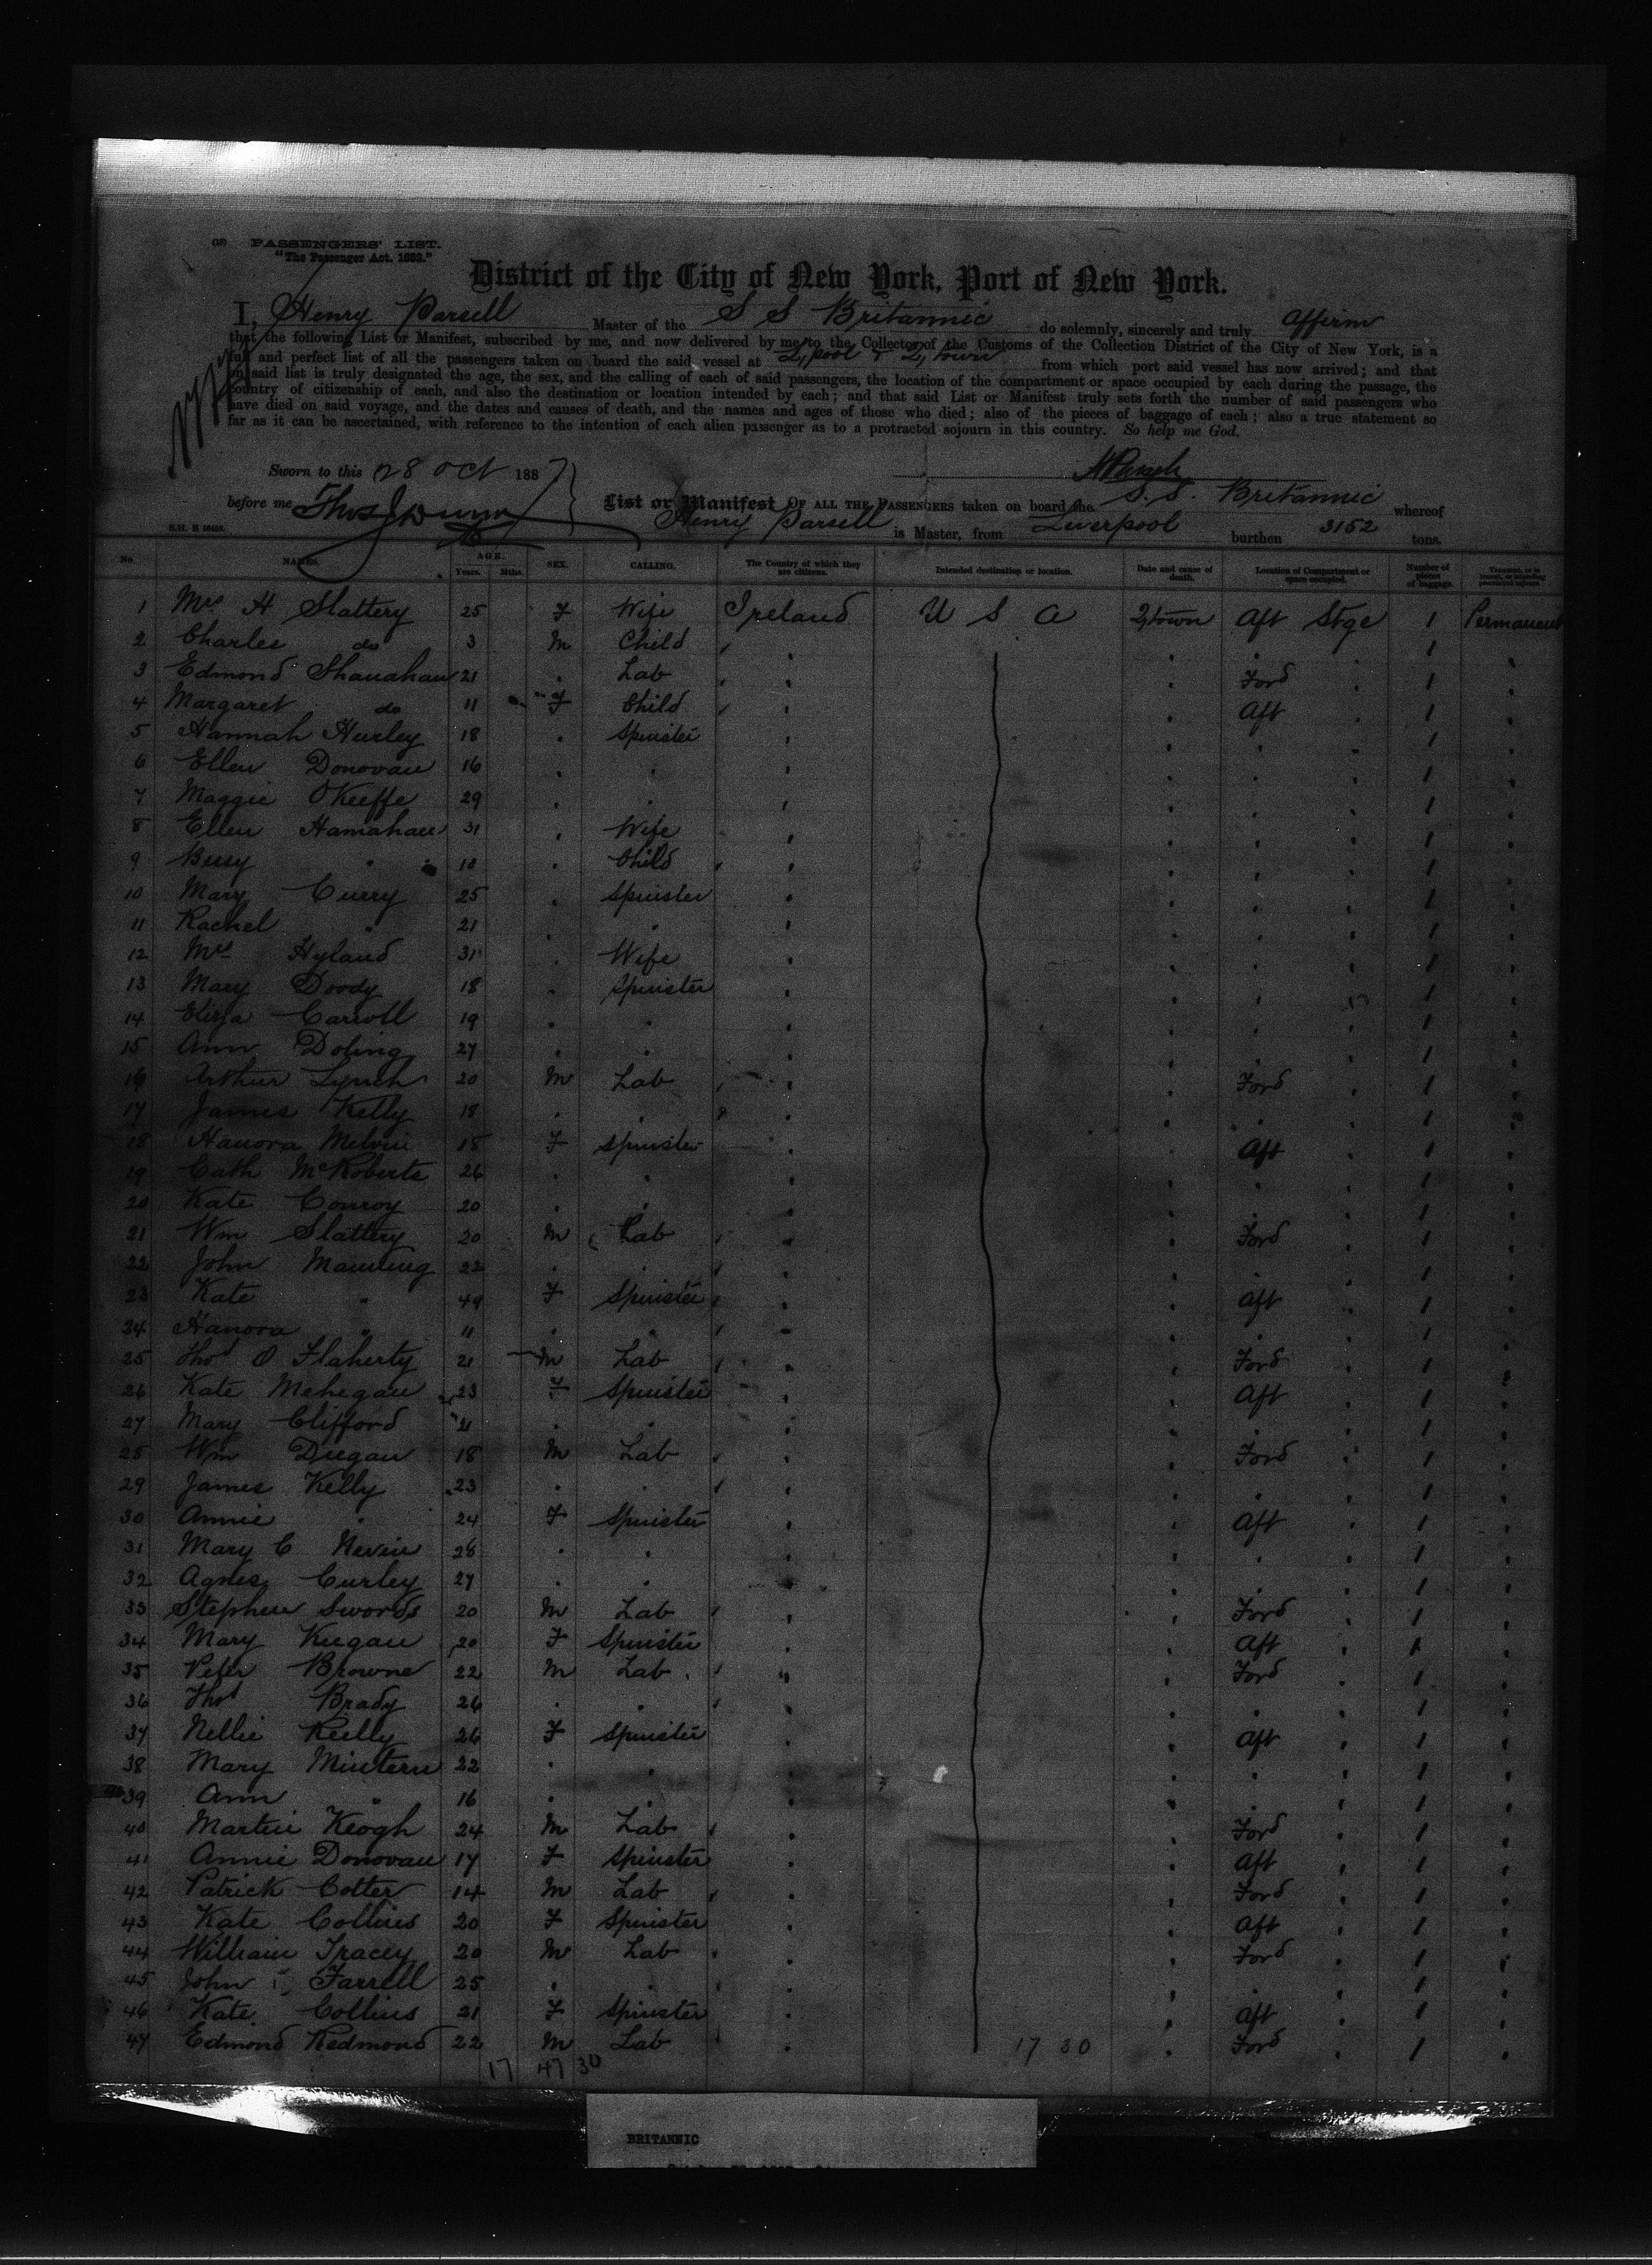 (18) PASSENGERS' LIST.
"The Passenger Act, 1882."
District of the City of New York, Port of New York.
I, Henry Parsell Master of the S S Britannic do solemnly, sincerely and truly Affirm
that the following List or Manifest, subscribed by me, and now delivered by me to the Collector of the Customs of the Collection District of the City of New York, is a
full and perfect list of all the passengers taken on board the said vessel at L,pool & Q,town from which port said vessel has now arrived; and that
on said list is truly designated the age, the sex, and the calling of each of said passengers, the location of the compartment or space occupied by each during the passage, the
country of citizenship of each, and also the destination or location intended by each; and that said List or Manifest truly sets forth the number of said passengers who
have died on said voyage, and the dates and causes of death, and the names and ages of those who died; also of the pieces of baggage of each; also a true statement so
far as it can be ascertained, with reference to the intention of each alien passenger as to a protracted sojourn in this country. So help me God.
Sworn to this 28 Oct 1887
HParsell
before me Thos J Dunn
List or Manifest OF ALL THE PASSENGERS taken on board the S.S. Britannic whereof
Henry Parsell is Master, from Liverpool burthen 3152 tons.
No. NAMES. AGE. Years. Mths. SEX. CALLING. The Country of which they are citizens. Intended destination or location. Date and cause of death. Location of Compartment or space occupied. Number of pieces of baggage.
1 Mrs H Slattery 25 F Wife Ireland U S A Q,town Aft Stge 1 Permanent
2 Charles do 3 M Child 1
3 Edmond Shanahan 21 Lab Ford 1
4 Margaret do 11 F Child Aft 1
5 Hannah Hurley 18 Spinster 1
6 Ellen Donovan 16 1
7 Maggie O'Keeffe 29 1
8 Ellen Hamahan 31 Wife 1
9 Bessy " 10 Child 1
10 Mary Curry 25 Spinster 1
11 Rachel " 21 " 1
12 Mrs Hyland 31 Wife 1
13 Mary Doody 18 Spinster 1
14 Eliza Carroll 19 " 1
15 Ann Doling 27 " 1
16 Arthur Lynch 20 M Lab Ford 1
17 James Kelly 18 " 1
18 Hanora Melvin 18 F Spinster Aft 1
19 Cath McRoberts 26 " 1
20 Kate Conroy 20 " 1
21 Wm Slattery 20 M Lab Ford 1
22 John Manning 22 " 1
23 Kate " 49 F Spinster Aft 1
24 Hanora " 11 " 1
25 Thos O Flaherty 21 M Lab Ford 1
26 Kate Mehegan 23 F Spinster Aft 1
27 Mary Clifford 21 " 1
28 Wm Deegan 18 M Lab Ford 1
29 James Kelly 23 " 1
30 Annie " 24 F Spinster Aft 1
31 Mary C Nevin 28 " 1
32 Agnes Curley 27 " 1
33 Stephen Swords 20 M Lab Ford 1
34 Mary Keegan 20 F Spinster Aft 1
35 Peter Browne 22 M Lab Ford 1
36 Thos Brady 26 " 1
37 Nellie Reilly 26 F Spinster Aft 1
38 Mary Mintern 22 " 1
39 Ann " 16 " 1
40 Martin Keogh 24 M Lab Ford 1
41 Annie Donovan 17 F Spinster Aft 1
42 Patrick Cotter 14 M Lab Ford 1
43 Kate Collins 20 F Spinster Aft 1
44 William Tracey 20 M Lab Ford 1
45 John Farrell 25 " 1
46 Kate Collins 21 F Spinster Aft 1
47 Edmond Redmond 22 M Lab 17 30 Ford 1
17 47 30
BRITANNIC